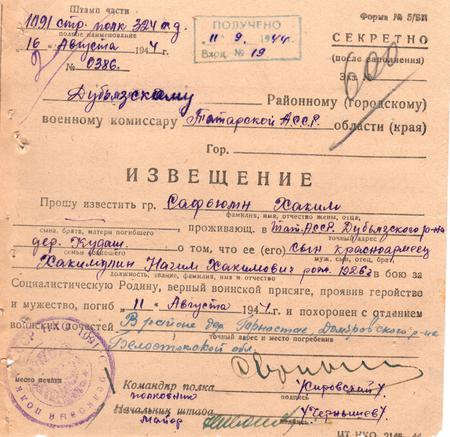 Штамп части
1091 стр. полк 324 с.д.
полное наименование
16 Августа 1944 г.
№ 0386.
ПОЛУЧЕНО
11 · 9 1944 г.
Вход. № 19
Форма № 5/БП
СЕКРЕТНО
(после заполнения)
Экз.
Дубьязскому Районному (городскому)
военному комиссару Татарской АССР. области (края)
Гор.
ИЗВЕЩЕНИЕ
Прошу известить гр. Сафьюмн Хаким
фамилия, имя, отчество жены, отца,
сына, брата, матери погибшего
проживающ. в Тат. АССР. Дубьязского р-на
точный адрес
дер. Кудаш. о том, что ее (его) сын красноармеец
семьи погибшего
муж, сын, отец, брат,
Хакимзян Нагим Хакимович рожд. 1926 г. в бою за
должность, звание, фамилия, имя и отчество
Социалистическую Родину, верный воинской присяге, проявив геройство
и мужество, погиб 11 Августа 1944 г. и похоронен с отданием
воинских почестей В районе дер. Домбровского р-на
точный адрес и место погребения
Белостокской обл.
место печати
Командир полка
полковник
/Кировский/
Начальник штаба
майор
/Чернышев/